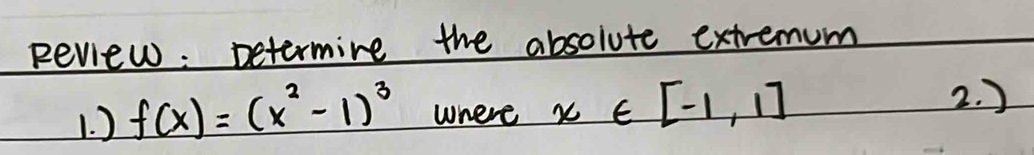 Review: Determine the absolute extremum
1.) f(x) = (x² - 1)³ where x ∈ [-1, 1] 2.)